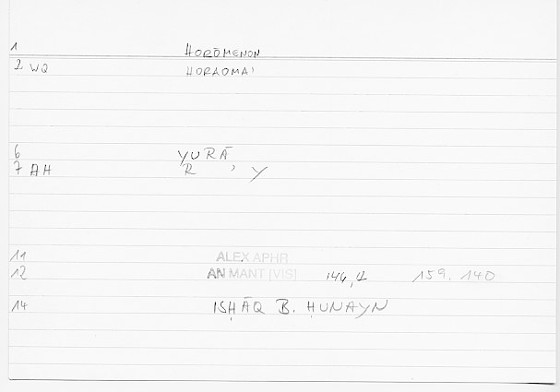 1 HORŌMENON
2 WQ HORAOMAI
6 YURĀ
7 AH R , Y
11 ALEX APHR
12 AN MANT [VIS] 144,4 159.140
14 ISḤĀQ B. ḤUNAYN